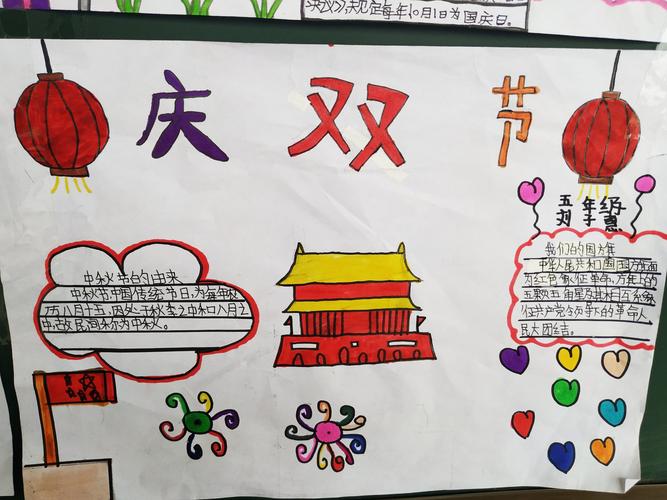 决议》,规定每年10月1日为国庆日。
庆 双 节
五年级
刘子惠
中秋节的由来
中秋节中国传统节日,为每年农
历八月十五,因处于秋季之中和八月之
中,故民间称为中秋。
我们的国旗
中华人民共和国国旗旗面
为红色,象征革命,旗面上的
五颗五角星及其相互关系象
征共产党领导下的革命人
民大团结。